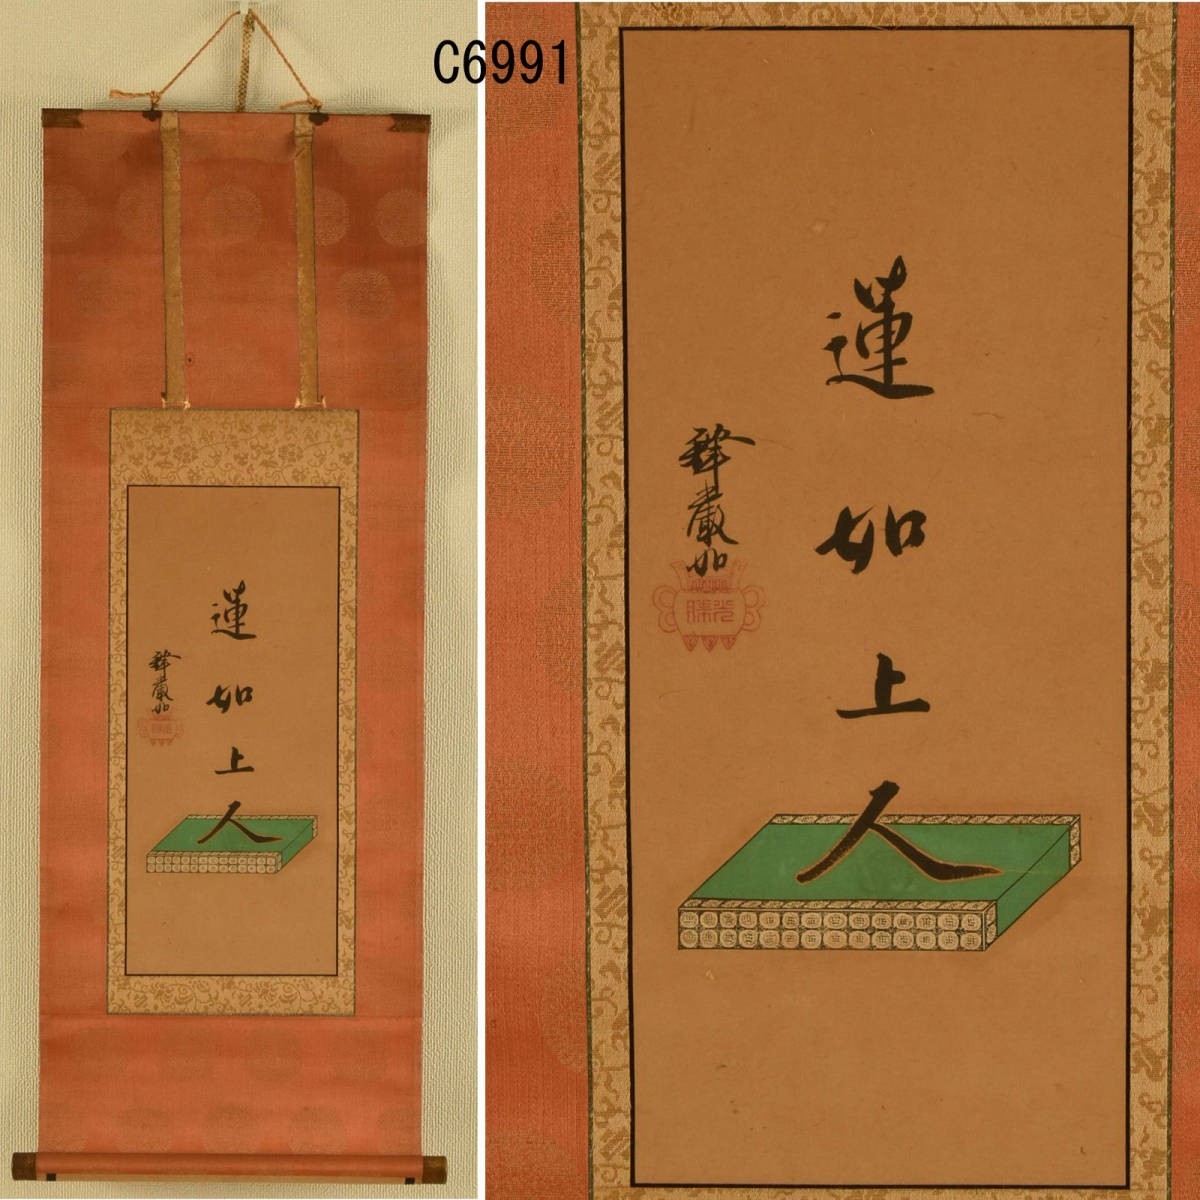 C6991
蓮如上人
釋嚴如
光勝
蓮如上人
釋嚴如